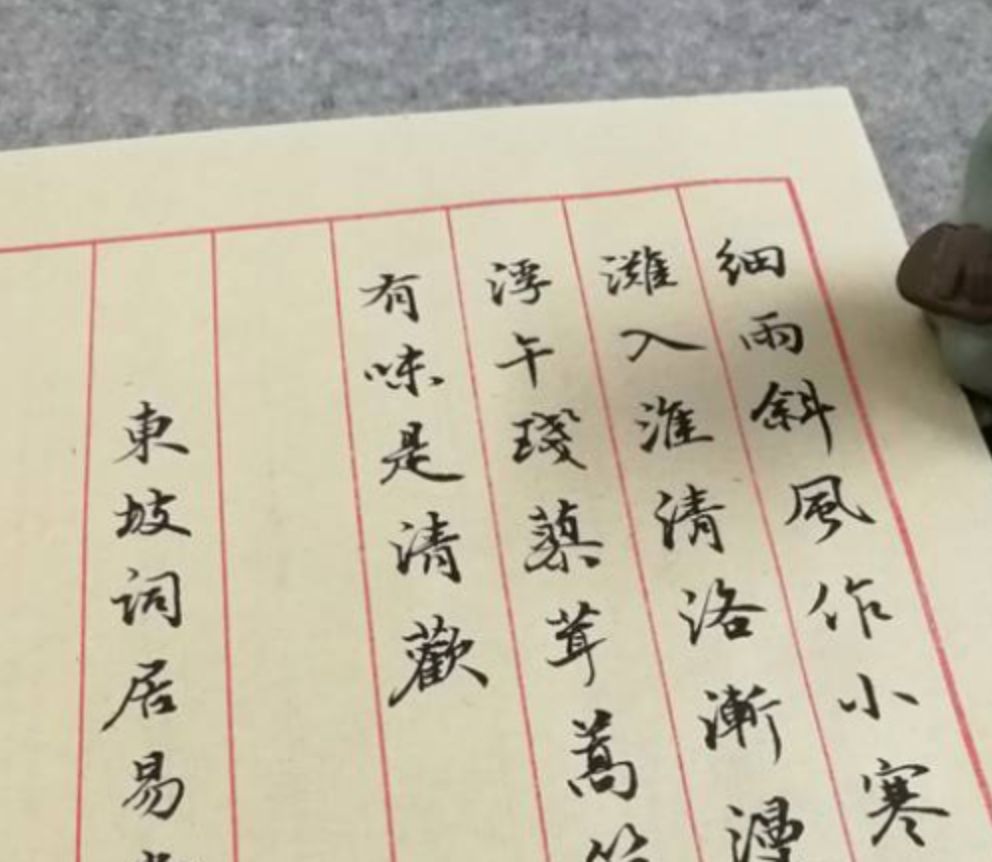 細雨斜風作小寒
灘入淮清洛漸漫
浮午琖蓼茸蒿
有味是清歡
東坡詞居易